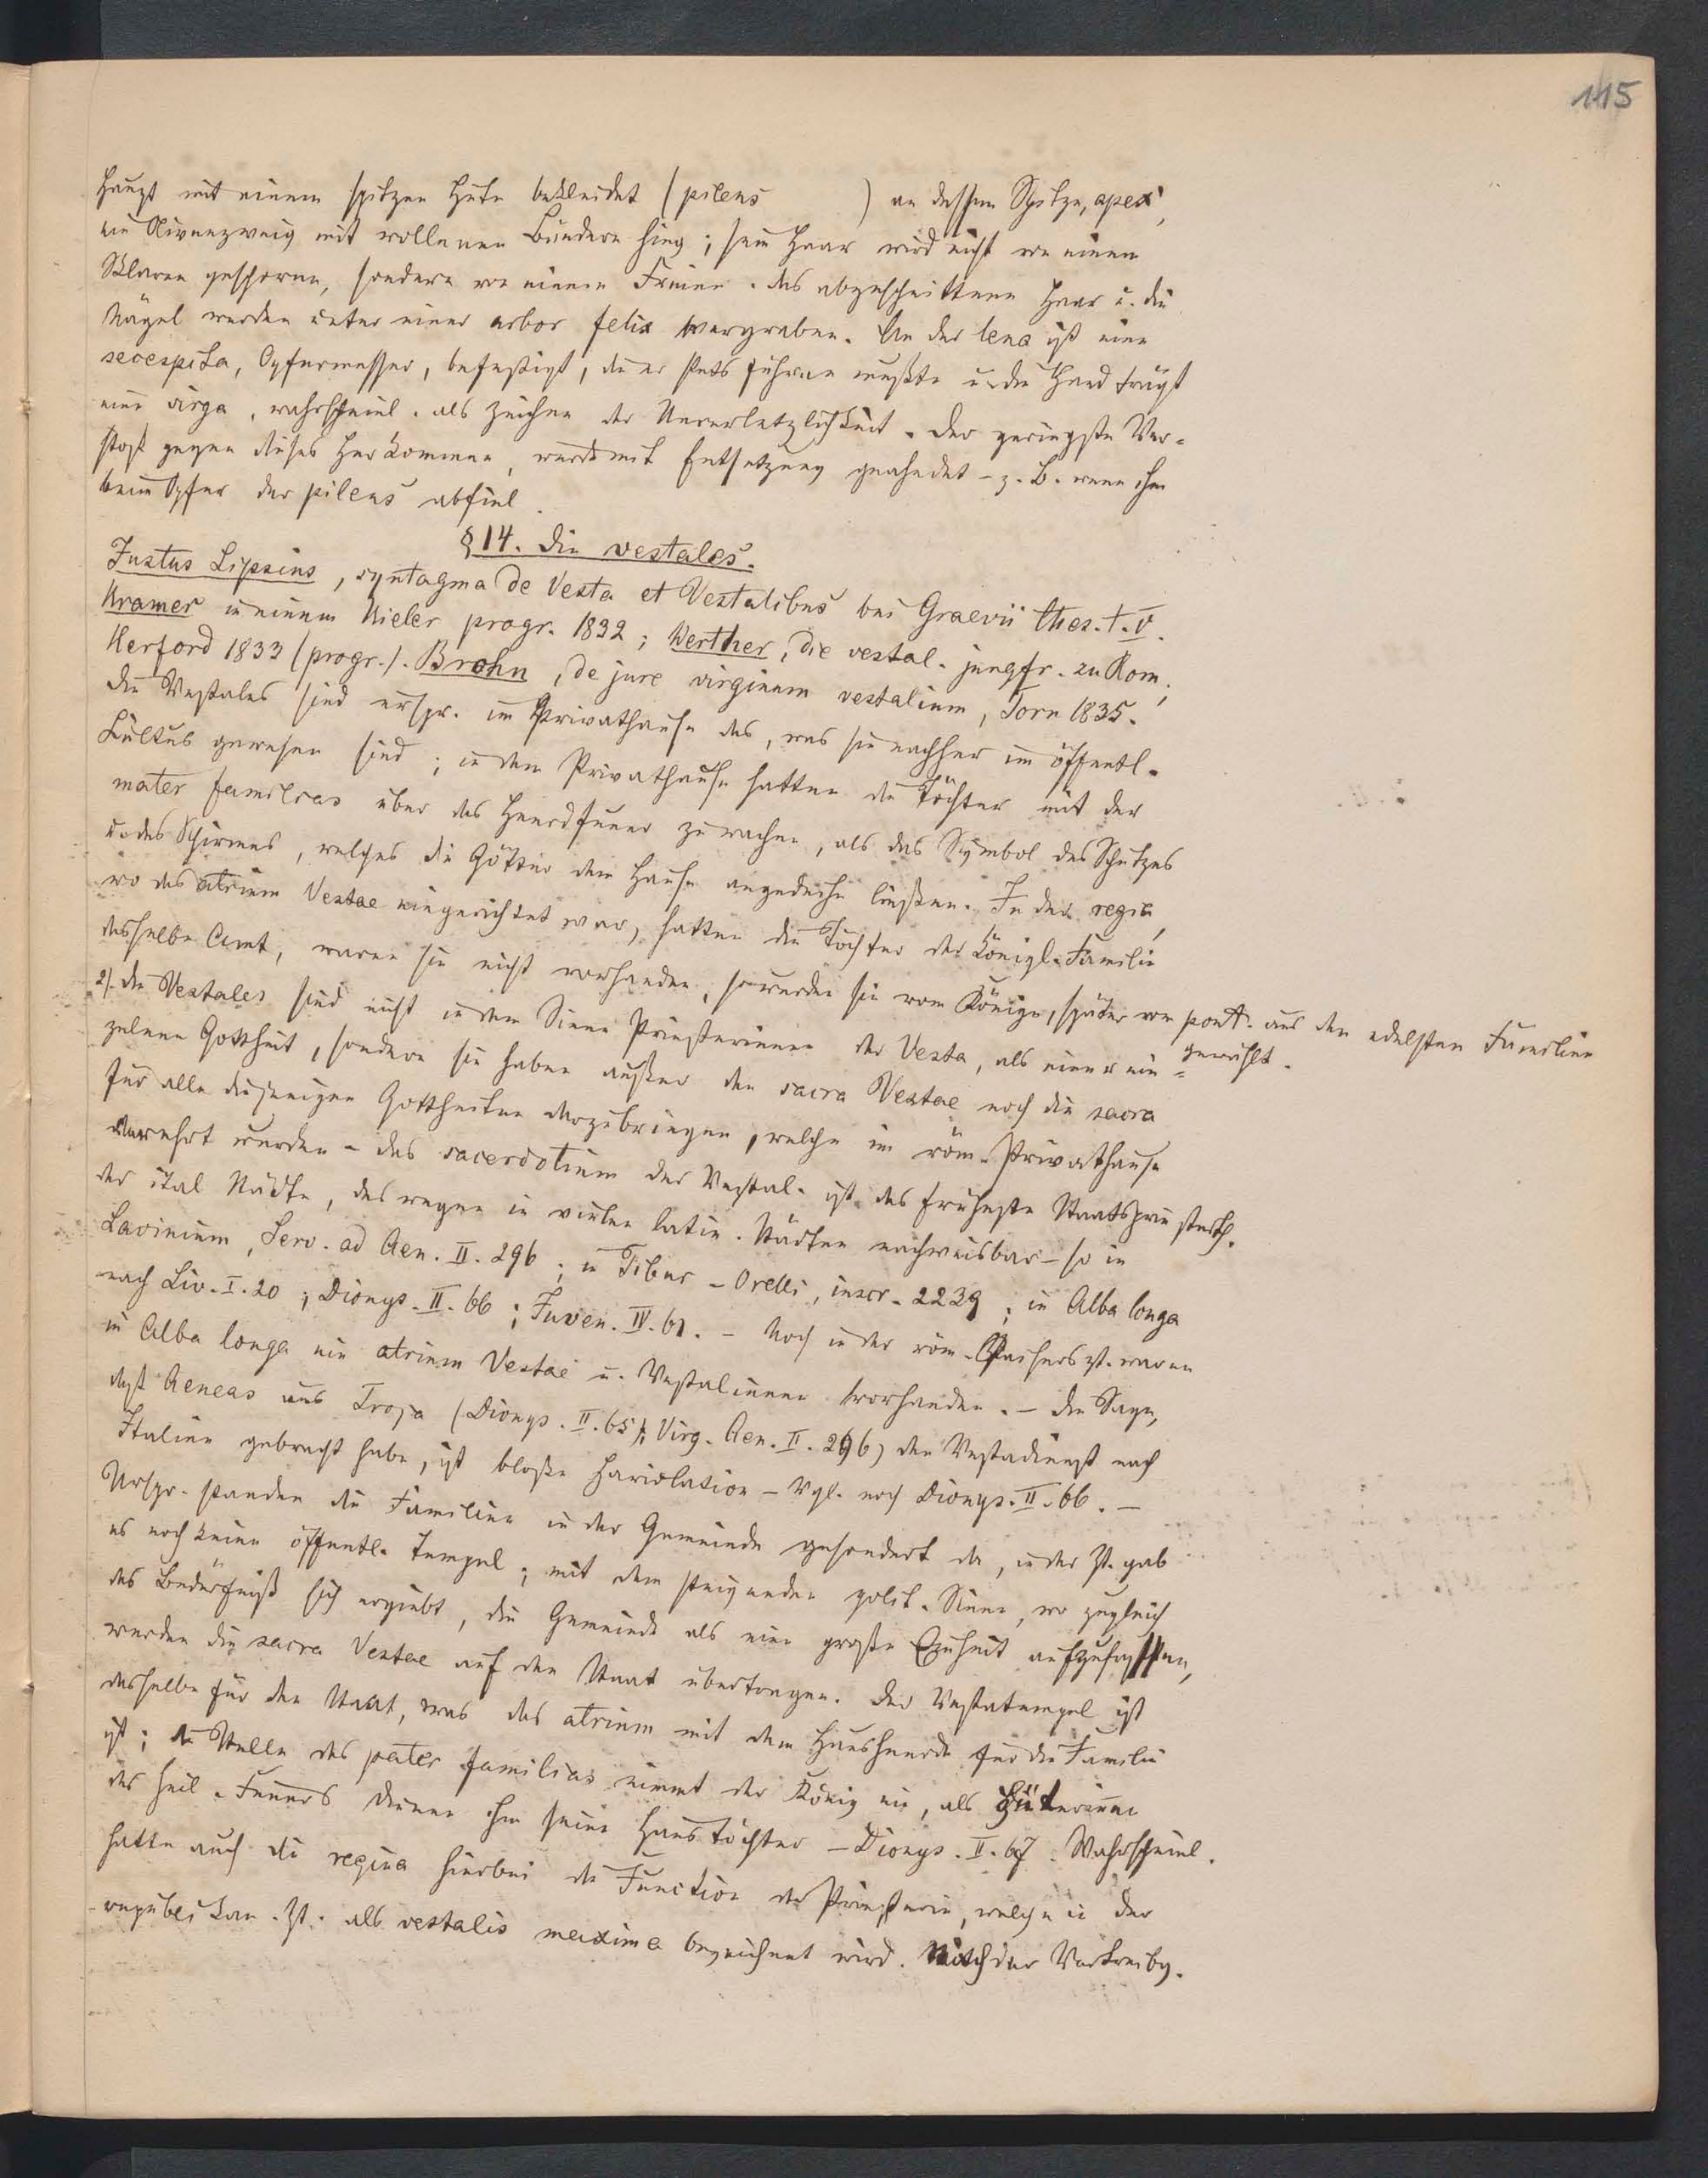 115
Haupt mit einem spitzen Hute bekleidet (pileus ) an dessen Spitze, apex,
ein Olivenzweig mit wollenen Bändern hing; sein Haar wird nicht von einem
Sklaven geschoren, sondern von einem Freien. das abgeschnittene Haar u. die
Nägel werden unter einer arbor felix vergraben. An der lena ist eine
secespita, Opfermesser, befestigt, die er stets führen mußte u. die Hand trägt
eine virga, wahrscheinl. als Zeichen der Unverletzlichkeit. Der geringste Ver-
stoß gegen dieses Herkommen, wurde mit Entsetzung geahndet - z. B. wenn ihm
beim Opfer der pileus abfiel.
§ 14. Die vestales.
Justus Lipsius, syntagma de Vesta et Vestalibus bei Graevii thes. t. V.
Kramer in einem Kieler progr. 1832; Werther, die vestal. jungfr. zu Rom,
Herford 1833 (progr.). Brohn, de jure virginum vestalium, Torn 1835.
die Vestales sind urspr. im Privathause das, was sie nachher im öffentl.
Kultus gewesen sind; in dem Privathause hatten die Töchter mit der
mater familias über das Heerdfeuer zu wachen, als das Symbol des Schutzes
u. des Schirmes, welches die Götter dem Hause angedeihn ließen. In der regia,
wo das atrium Vestae eingerichtet war, hatten die Töchter der königl. Familie
dasselbe Amt, waren sie nicht vorhanden, so wurden sie vom Könige, später vom pont. aus den edelsten Familien
gewählt.
2). die Vestales sind nicht in dem Sinne Priesterinnen der Vesta, als einer ein-
zelnen Gottheit, sondern sie haben außer den sacra Vestae noch die sacra
für alle diejenigen Gottheiten darzubringen, welche im röm. Privathause
verehrt wurden - das sacerdotium der Vestal. ist das früheste Staatspriesterth.
der ital Städte, deswegen in vielen latin. Städten nachweisbar - so in
Lavinium, Serv. ad Aen. II. 296; in Tibur - Orelli, inscr. 2239; in Alba longa
nach Liv. I. 20; Dionys. II. 66; Juven. IV. 61. - Noch in der röm. Kaiserzt. waren
in Alba longa ein atrium Vestae u. Vestalinnen vorhanden. - die Sage,
daß Aeneas aus Troja (Dionys. II. 65; Virg. Aen. II. 296) den Vestadienst nach
Italien gebracht habe, ist bloße Hariolation - Vgl. noch Dionys. II. 66. -
Urspr. standen die Familien in der Gemeinde gesondert da, in der Zt. gab
es noch keine öffentl. Tempel; mit dem steigenden polit. Sinne, wo zugleich
das Bedürfniß sich ergiebt, die Gemeinde als eine große Einheit aufzufassen,
werden die sacra Vestae auf den Staat übertragen. Der Vestatempel ist
dasselbe für den Staat, was das atrium mit dem Hausheerde für die Familie
ist; die Stelle des pater familias nimmt der König ein, als Hüterinnen
des heil. Feuers dienen ihm seine Haustöchter - Dionys. II. 67. Wahrscheinl.
hatte auch die regina hierbei die Function der Priesterin, welche in der
republikan. Zt. als vestalis maxima bezeichnet wird. Nach der Vertreibg.